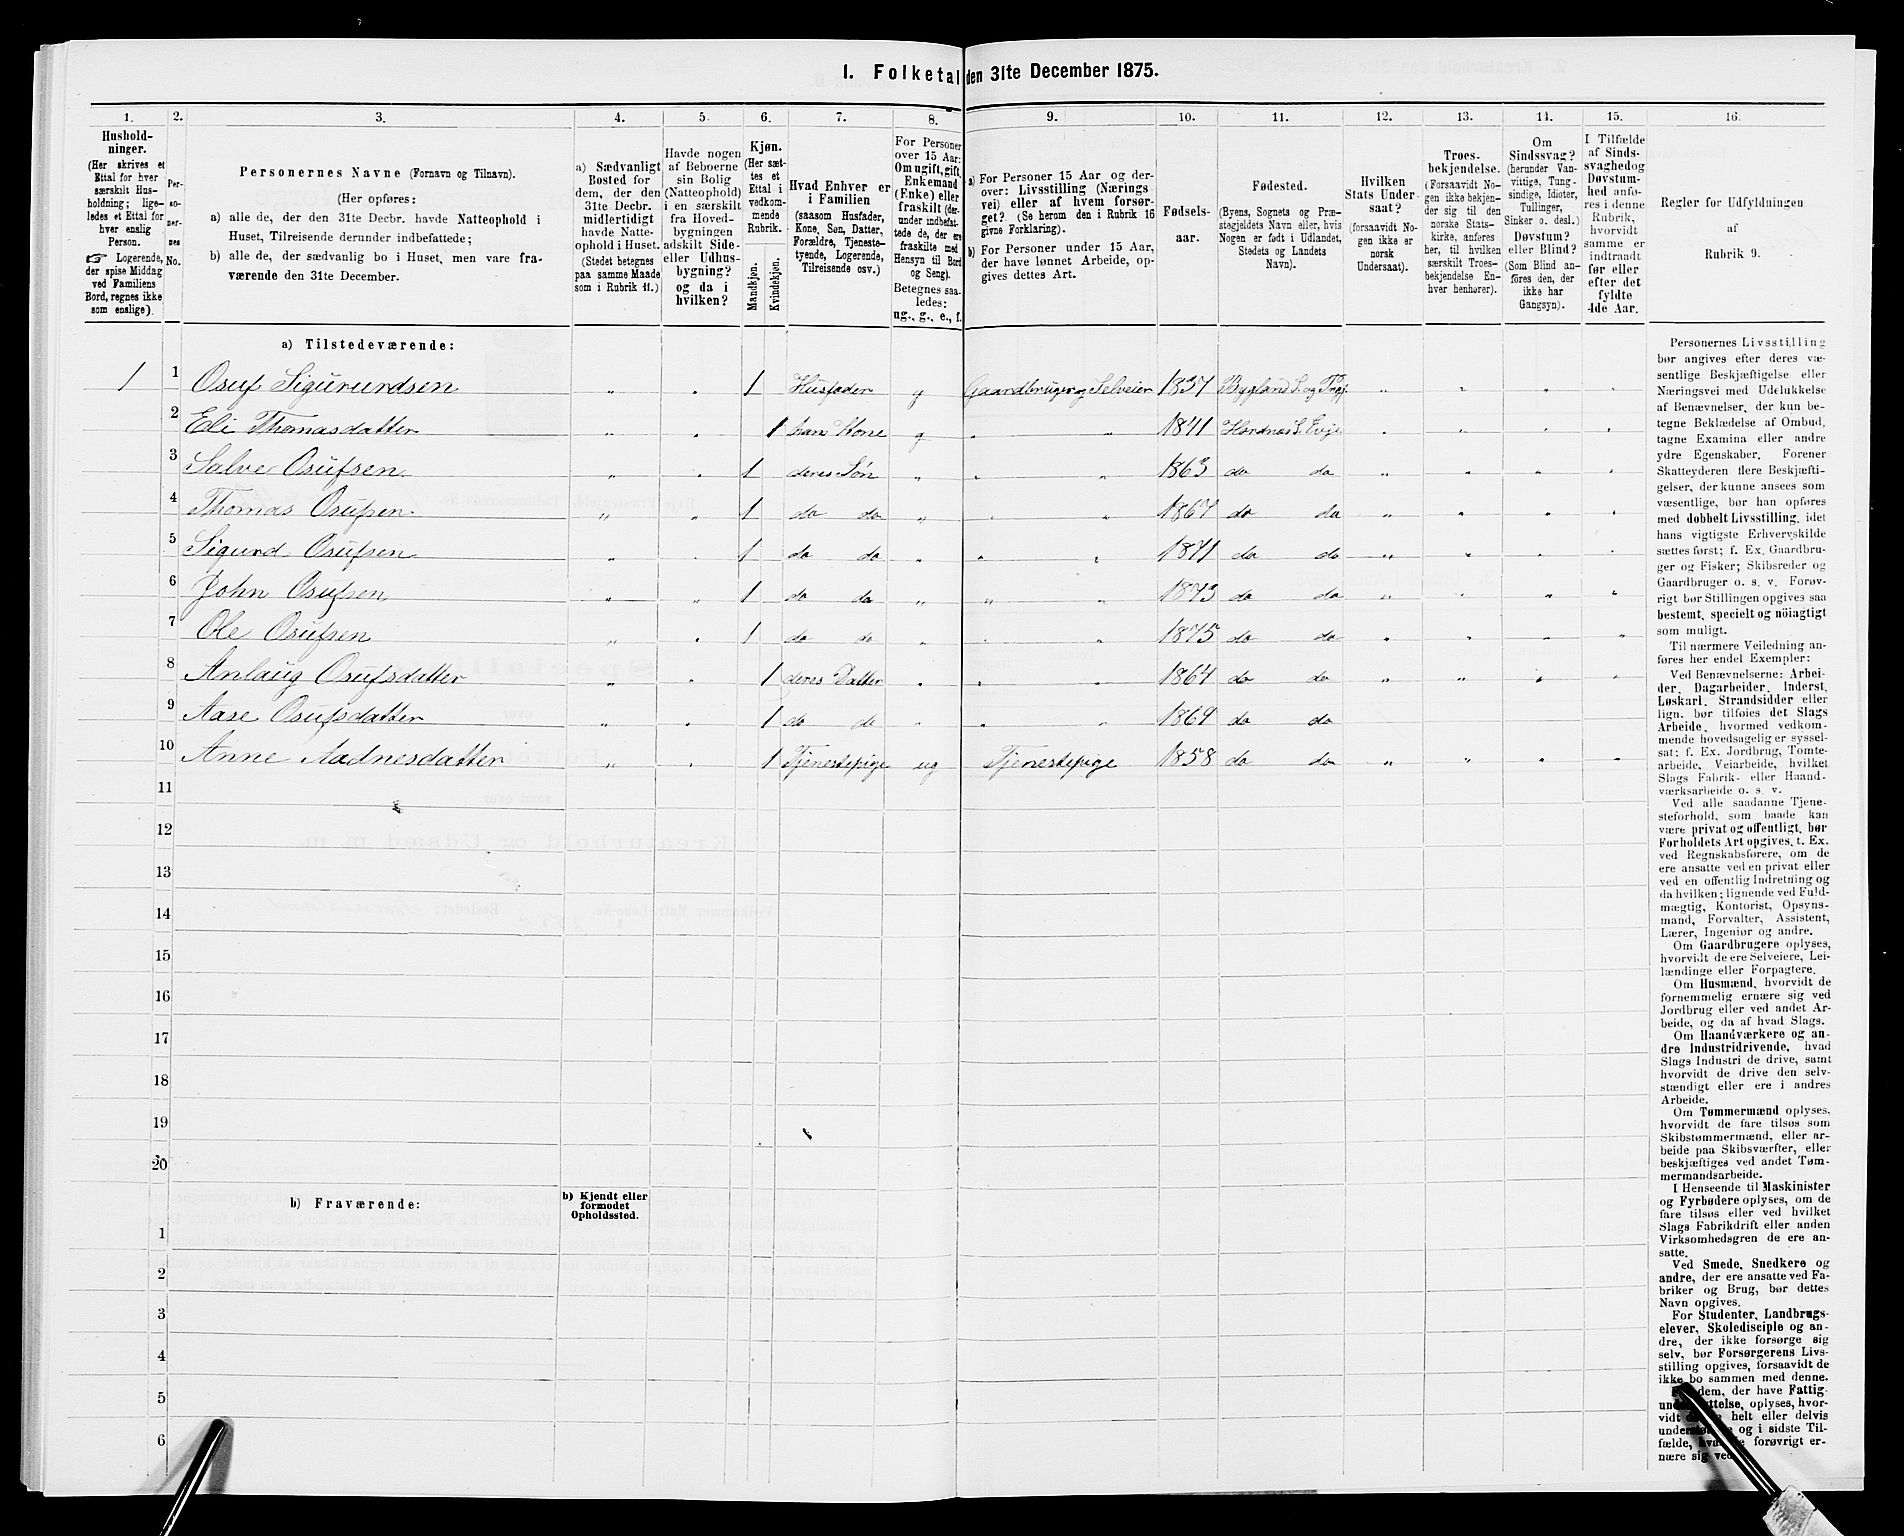 1. Folketal den 31te December 1875.
1. 2. 3. 4. 5. 6. 7. 8. 9. 10. 11. 12. 13. 14. 15. 16.
Hushold-
ninger.
(Her skrives et
Ettal for hver
særskilt Hus-
holdning; lige-
ledes et Ettal for
hver enslig
Person.
☞ Logerende,
der spise Middag
ved Familiens
Bord, regnes ikke
som enslige).
Per-
so-
ner-
nes
No.
Personernes Navne (Fornavn og Tilnavn).
(Her opføres:
a) alle de, der den 31te Decbr. havde Natteophold i
Huset, Tilreisende derunder indbefattede;
b) alle de, der sædvanlig bo i Huset, men vare fra-
værende den 31te December.
a) Sædvanligt
Bosted for
dem, der den
31te Decbr.
midlertidigt
havde Natte-
ophold i Huset.
(Stedet betegnes
paa samme Maade
som i Rubrik 11.)
Havde nogen
af Beboerne
sin Bolig
(Natteophold)
i en særskilt
fra Hoved-
bygningen
adskilt Side-
eller Udhus-
bygning?
og da i
hvilken?
Kjøn.
(Her sæt-
tes et
Ettal i
vedkom-
mende
Rubrik.
Mandkjøn.
Kvindekjøn.
Hvad Enhver er
i Familien
(saasom Husfader,
Kone, Søn, Datter,
Forældre, Tjeneste-
tyende, Logerende,
Tilreisende osv.)
For Personer
over 15 Aar:
Om ugift, gift,
Enkemand
(Enke) eller
fraskilt (der-
under indbefat-
tede de, der ere
fraskilte med
Hensyn til Bord
og Seng).
Betegnes saa-
ledes:
ug., g., e., f.
a) For Personer 15 Aar og der-
over: Livsstilling (Nærings-
vei) eller af hvem forsør-
get? (Se herom den i Rubrik 16
givne Forklaring).
b) For Personer under 15 Aar,
der have lønnet Arbeide, op-
gives dettes Art.
Fødsels-
aar.
Fødested.
(Byens, Sognets og Præ-
stegjeldets Navn eller, hvis
Nogen er født i Udlandet,
Stedets og Landets
Navn).
Hvilken
Stats Under-
saat?
(forsaavidt No-
gen ikke er
norsk
Undersaat).
Troes-
bekjendelse.
(Forsaavidt No-
gen ikke bekjen-
der sig til den
norske Stats-
kirke, anføres
her, til hvilken
særskilt Troes-
bekjendelse En-
hver henhører).
Om
Sindssvag?
(herunder Van-
vittige, Tung-
sindige, Idioter,
Tullinger,
Sinker o. desl.)
Døvstum?
eller Blind?
(Som Blind an-
føres den, der
ikke har
Gangsyn).
I Tilfælde
af Sinds-
svaghed og
Døvstum-
hed anfø-
res i denne
Rubrik,
hvorvidt
samme er
indtraadt
før eller
efter det
fyldte
4de Aar.
Regler for Udfyldningen
af
Rubrik 9.
a) Tilstedeværende:
1 1 Osuf Sigurundsen " " 1 Husfader g Gaardbruger og Selveier 1837 Bygland S. og Præj. " " " "
2 Eli Thomasdatter " " 1 hans Kone g " " 1841 Hordnæs S. Evje " " " "
3 Salve Osufsen " " 1 deres Søn " " " 1863 do do " " " "
4 Thomas Osufsen " " 1 do do " " " 1867 do do " " " "
5 Sigurd Osufsen " " 1 do do " " " 1871 do do " " " "
6 John Osufsen " " 1 do do " " " 1873 do do " " " "
7 Ole Osufsen " " 1 do do " " " 1875 do do " " " "
8 Anlaug Osufsdatter " " 1 deres Datter " " " 1864 do do " " " "
9 Aase Osufsdatter " " 1 do do " " " 1869 do do
10 Anne Aadnesdatter " " 1 Tjenestepige ug Tjenestepige 1858 do do " " " "
11
12
13
14
15
16
17
18
19
20
b) Fraværende:
b) Kjendt eller
formodet
Opholdssted.
1
2
3
4
5
6
Personernes Livsstilling
bør angives efter deres væ-
sentlige Beskjæftigelse eller
Næringsvei med Udelukkelse
af Benævnelser, der kun be-
tegne Beklædelse af Ombud,
tagne Examina eller andre
ydre Egenskaber. Forener
Skatteyderen flere Beskjæfti-
gelser, der kunne ansees som
væsentlige, bør han opføres
med dobbelt Livsstilling, idet
hans vigtigste Erhvervskilde
sættes først; f. Ex. Gaardbru-
ger og Fisker; Skibsreder og
Gaardbruger o. s. v. Forøv-
rigt bør Stillingen opgives saa
bestemt, specielt og nöiagtigt
som muligt.
Til nærmere Veiledning an-
føres her endel Exempler:
Ved Benævnelserne: Arbei-
der, Dagarbeider, Inderst,
Løskarl, Strandsidder eller
lign. bør tilføies det Slags
Arbeide, hvormed vedkom-
mende hovedsagelig er syssel-
sat: f. Ex. Jordbrug, Tomte-
arbeide, Veiarbeide, hvilket
Slags Fabrik- eller Haand-
værksarbeide o. s. v.
Ved alle saadanne Tjene-
steforhold, som baade kan
være privat og offentligt, bør
Forholdets Art opgives, t. Ex.
ved Regnskabsførere, om de
ere ansatte ved en privat eller
ved en offentlig Indretning og
da hvilken; lignende ved Fuld-
mægtig, Kontorist, Opsyns-
mand, Forvalter, Assistent,
Lærer, Ingeniør og andre.
Om Gaardbrugere oplyses,
hvorvidt de ere Selveiere, Lei-
lændinge eller Forpagtere.
Om Husmænd, hvorvidt de
fornemmelig ernære sig ved
Jordbrug eller ved andet Ar-
beide, og da af hvad Slags.
Om Haandværkere og an-
dre Industridrivende, hvad
Slags Industri de drive, samt
hvorvidt de drive den selv-
stændigt eller ere i andres
Arbeide.
Om Tømmermænd oplyses,
hvorvidt de fare tilsøs som
Skibstømmermænd, eller ar-
beide paa Skibsværfter, eller
beskjæftiges ved andet Tøm-
mermandsarbeide.
I Henseende til Maskinister
og Fyrbødere oplyses, om de
fare tilsøs eller ved hvilket
Slags Fabrikdrift eller anden
Virksomhedsgren de ere an-
satte.
Ved Smede, Snedkere og
andre, der ere ansatte ved Fa-
briker og Brug, bør dettes
Navn opgives.
For Studenter, Landbrugs-
elever, Skoledisciple og an-
dre, der ikke forsørge sig
selv, bør Forsørgerens Livs-
stilling opgives, forsaavidt de
ikke bo sammen med denne.
dem, der have Fattig-
oplyses, hvor-
helt eller delvis
og i sidste Til-
fælde, forøvrigt er-
nære sig